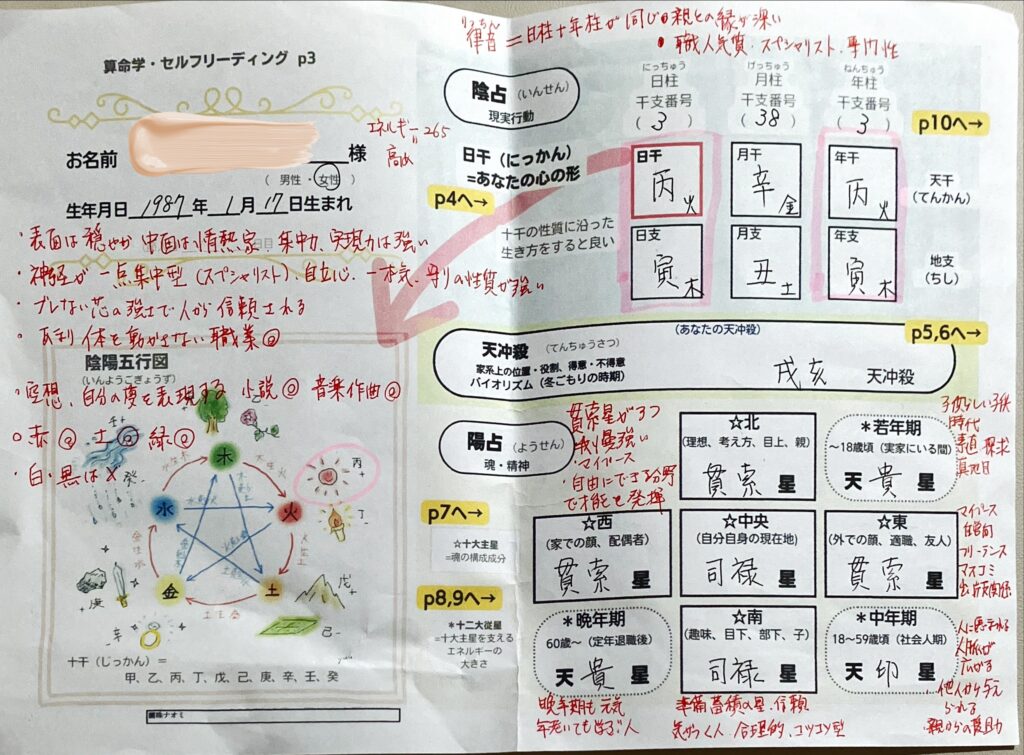 算命学・セルフリーディング p3
お名前
様
(男性・女性)
エネルギー=265
高め
生年月日 1987年 1月 17日生まれ
・表面は穏やか 中面は情熱家、集中力、実現力は強い
・神経が一点集中型(スペシャリスト)、自立心、一本気、守りの性質が強い
・ブレない芯の強さで人から信頼される
・あまり体を動かさない職業◎
・空想、自分の夢を表現する 小説◎ 音楽作曲◎
・赤◎ 土◎ 緑◎
・白・黒は×
陰陽五行図
(いんようごぎょうず)
木
火
土
金
水
甲+
乙-
丙
+
丁
-
戊
+
己
-
庚
+
辛
-
癸
-
水生木
木生火
火生土
土生金
金生水
十干(じっかん)=
甲、乙、丙、丁、戊、己、庚、辛、壬、癸
りっちん
律音=日柱+年柱が同じ 親との縁が深い
・職人気質・スペシャリスト・専門性
陰占(いんせん)
現実行動
にっちゅう
日柱
干支番号
(3)
げっちゅう
月柱
干支番号
(38)
ねんちゅう
年柱
干支番号
(3)
p10へ→
日干(にっかん)
=あなたの心の形
p4へ→
十干の性質に沿った
生き方をすると良い
日干
丙火
月干
辛金
年干
丙火
天干
(てんかん)
日支
寅木
月支
丑土
年支
寅木
地支
(ちし)
天冲殺(てんちゅうさつ)
家系上の位置・役割、得意・不得意
バイオリズム(冬ごもりの時期)
(あなたの天冲殺)
戌亥 天冲殺
p5,6へ→
陽占(ようせん)
魂・精神
貫索星が3つ
我が一番強い
・マイペース
・自由にできる分野
で才能を発揮
p7へ→
☆十大主星
=魂の構成成分
p8,9へ→
*十二大従星
=十大主星を支える
エネルギーの
大きさ
☆北
(理想、考え方、目上、親)
貫索 星
*若年期
~18歳頃(実家にいる間)
天 貴 星
子供らしい子供
時代
素直 探求
真面目
☆西
(家での顔、配偶者)
貫索 星
☆中央
(自分自身の現在地)
司禄 星
☆東
(外での顔、適職、友人)
貫索 星
マイペース
自営向
フリーランス
マスコミ
出版関係
*晩年期
60歳~(定年退職後)
天 貴 星
☆南
(趣味、目下、部下、子)
司禄 星
*中年期
18~59歳頃(社会人期)
天 印 星
人に愛される
人脈が
広がる
他人から与え
られる
親からの援助
晩年期も元気
年老いても学ぶ人
準備蓄積の星・信頼
気がつく人 合理的、コツコツ型